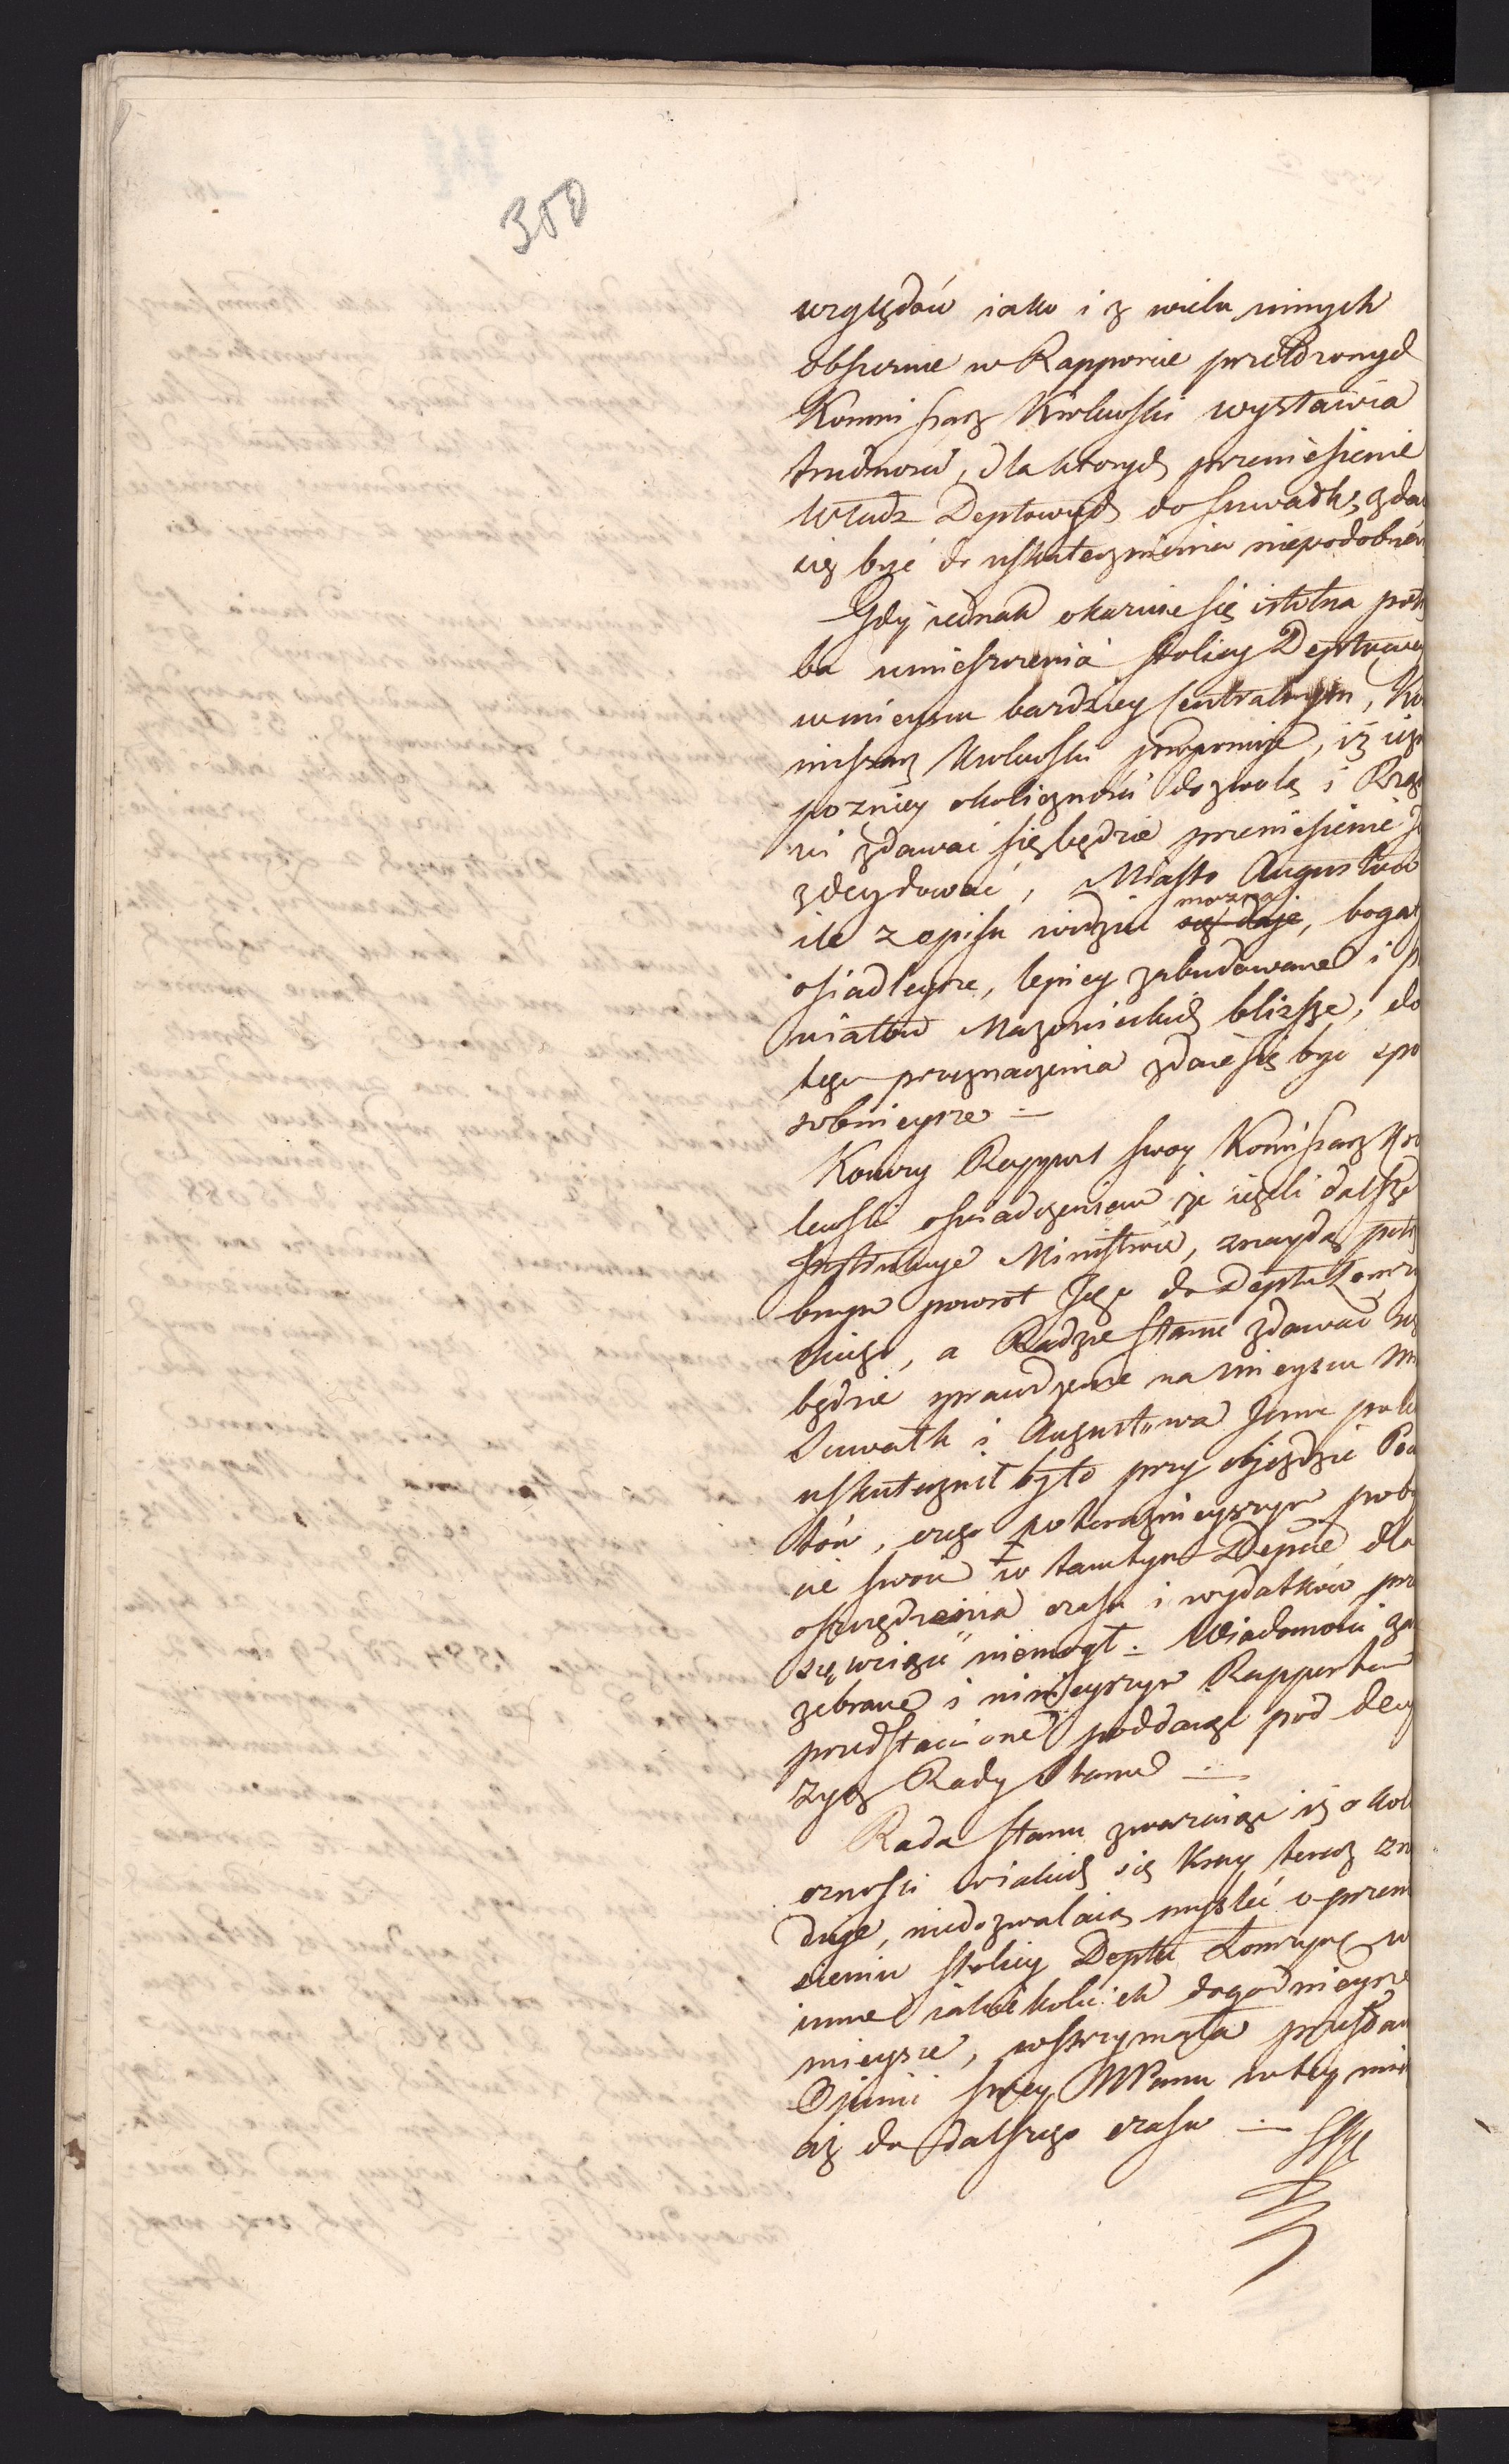 300
względów iako i z wielu innych
obszernie w Rapporcie przełożonych
Kommissarz Królewski wystawia
trudności, dla ktorych przeniesienie
Władz Deptowych do Suwałk, zda
się być do uskutecznienia niepodobném
Gdy iednak okazuie się istotna potrz
ba umieszczenia Stolicy Deptowey
w mieyscu bardziey Centralnym, Ko
missarz Królewski proponuie, iż ieże
poźniey okoliczności dozwolą i Rzą
wi zdawać się będzie przeniesienie
zdecydować, Miasto Augustów
ile z opisu widzieć można
się daje, bogat
osiadleysze, lepiey zabudowane i p
wiatów Mazowieckich bliższe, do
tego przeznaczenia zdaie się być spo
sobnieysze —
Kończy Rapport swoy Kommissarz Kró
lewski oświadczeniem że ieżeli dalsze
Instrukcye Ministrów, znaydą potrze
bnym powrot Jego do Deptu Łomży
skiego, a Radzie Stanu zdawać się
będzie sprawdzenie na mieyscu
Suwałk i Augustowa Jemu pole
uskutecznił by to przy objeździe Powia
tów, czego w teraznieyszym poby
cie swoim w tamtym Depcie dla
oszczędzenia czasu i wydatków prz
sięwziąć niemogł. Wiadomości za
zebrane i ninieyszym Rapportem
przedstawione poddaiąc pod decy
zyą Rady Stanu —
Rada Stanu zważaiąc iż okoli
czności w iakich się Kray teraz zna
duje, niedozwalaią myśleć o przeni
sieniu Stolicy Deptu Łomżyńs w
inne iakiekolwiek dogodnieysze
mieysce, wstrzymała przesłan
Opinii swey WPanu w tey mie
aż do dalszego czasu —